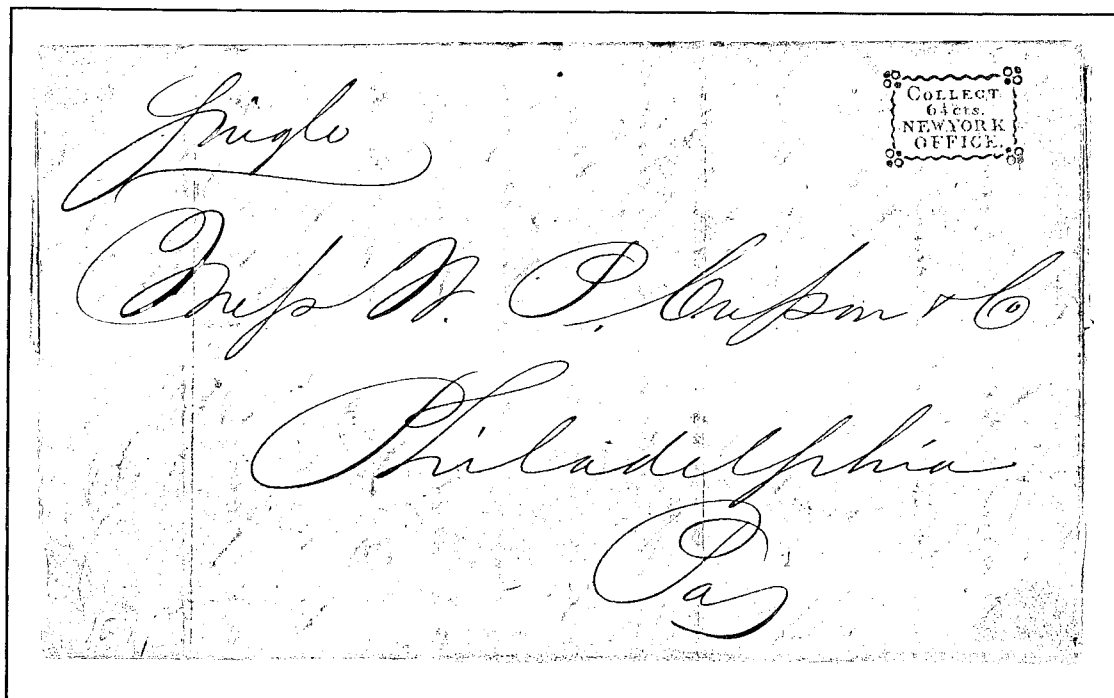 Single
COLLECT
6¼cts.
NEW YORK
OFFICE.
Mess W. P. Cresson & Co
Philadelphia
Pa